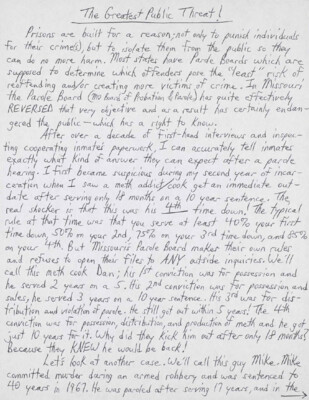 The Greatest Public Threat!
Prisons are built for a reason; not only to punish individuals
for their crime(s), but to isolate them from the public so they
can do no more harm. Most states have Parole Boards which are
supposed to determine which offenders pose the "least" risk of
reoffending and/or creating more victims of crime. In Missouri
the Parole Board (MO Board of Probation & Parole) has quite effectively
REVERSED that very objective and as a result has certainly endan-
gered the public - which has a right to know.
After over a decade of first-hand interviews and inspec-
ting cooperating inmates paperwork, I can accurately tell inmates
exactly what kind of answer they can expect after a parole
hearing. I first became suspicious during my second year of incar-
ceration when I saw a meth addict/cook get an immediate out-
date after serving only 18 months on a 10 year sentence. The
real shocker is that this was his 4th time down! The typical
rule at that time was that you serve at least 40% your first
time down, 50% on your 2nd, 75% on your 3rd time down, and 85%
on your 4th. But Missouri's Parole Board makes their own rules
and refuses to open their files to ANY outside inquiries. We'll
call this meth cook Dan; his 1st conviction was for possession and
he served 2 years on a 5. His 2nd conviction was for possession and
sales, he served 3 years on a 10 year sentence. His 3rd was for dis-
tribution and violation of parole. He still got out within 5 years! The 4th
conviction was for possession, distribution, and production of meth and he got
just 10 years for it. Why did they kick him out after only 18 months?
Because they KNEW he would be back!
Let's look at another case. We'll call this guy Mike. Mike
committed murder during an armed robbery and was sentenced to
40 years in 1967. He was paroled after serving 17 years, and in the →